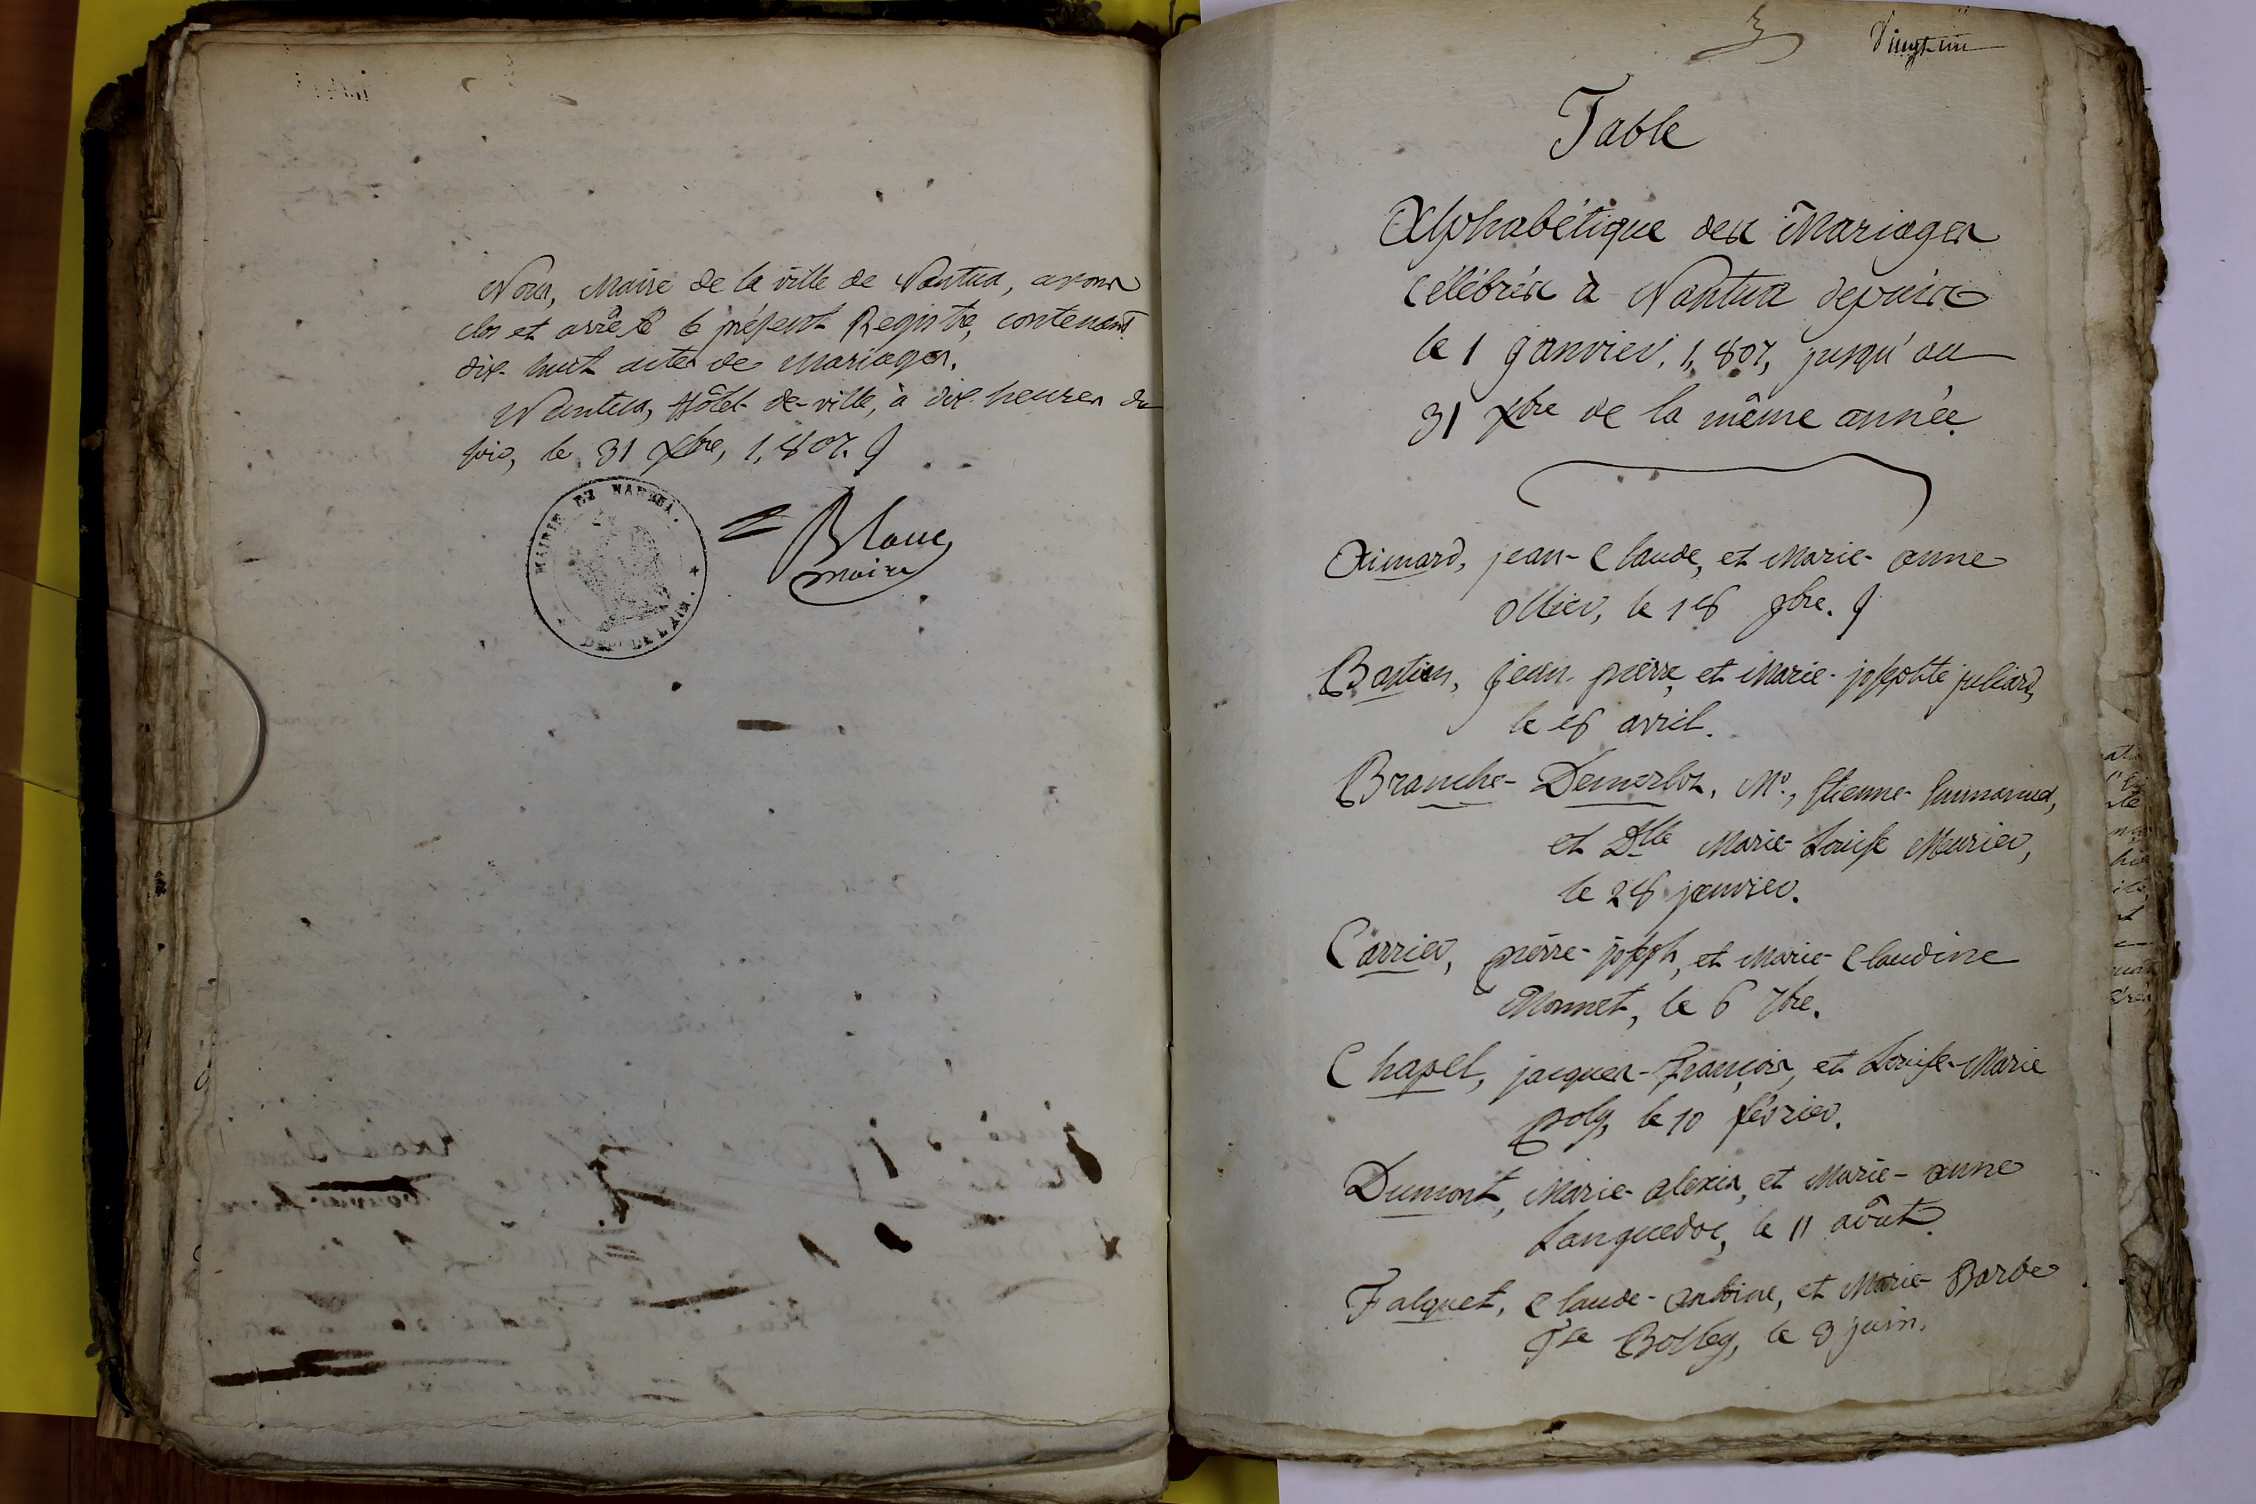 Nous, Maire de la ville de Nantua, avons
clos et arrêté le présent Registre, contenant
dix-huit actes de Mariages.
Nantua, Hôtel-de-ville, à dix heures du
soir, le 31 Xbre, 1,807.
MAIRIE DE NANTUA.
DEPT DE L'AIN.
Blanc
maire
Vingt-un
Table
Alphabétique des Mariages
Célébrés à Nantua depuis
le 1 janvier, 1,807, jusqu'au
31 Xbre de la même année.
Aimard, jean-Claude, et Marie-anne
ollier, le 18 9bre.
Bastien, jean-pierre, et Marie-josephte juliard,
le 8 avril.
Branche-Demerloz, Mr., Etienne-Emmanuel,
et Dlle Marie-Louise Meurier,
le 28 janvier.
Carrier, pierre-joseph, et Marie-Claudine
Monnet, le 6 7bre.
Chapel, jacques-françois, et Louise-Marie
poly, le 10 février.
Dumont, Marie-alexis, et Marie-anne
Languedoc, le 11 août.
Falquet, Claude-antoine, et Marie-Barbe
Bolley, le 3 juin.